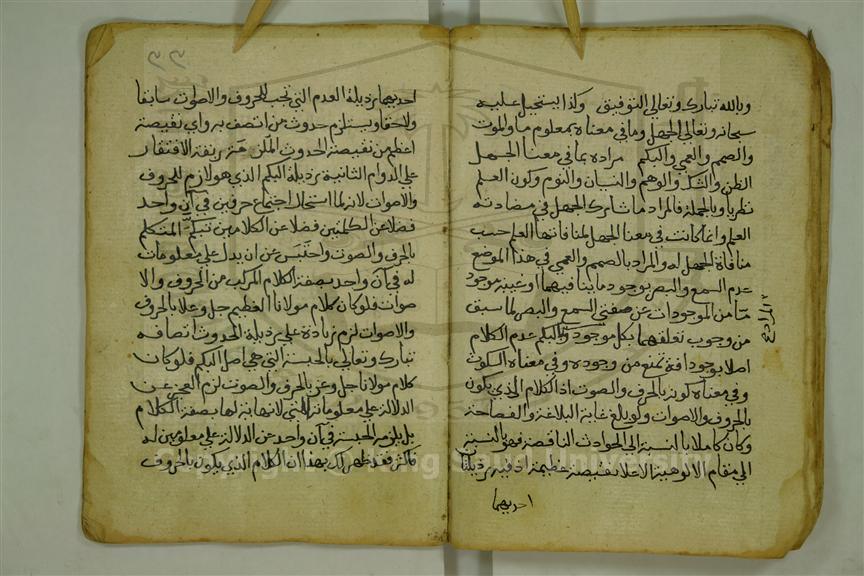 وبالله تبارك وتعالى التوفيق وكذا يستحيل عليه
سبحانه وتعالى الجهل وما في معناه بمعلوم ما والموت
والصمم والعمي والبكم مراده بما في معنا الجهل
الظن والشك والوهم والنسيان والنوم وكون العلم
نظريا وبالجملة فالمراد ما شارك الجهل في مضادته
العلم وانما كانت في معنا الجهل لمنافاتها العلم حسب
منافاة الجهل له والمراد بالصمم والعمي في هذا الموضع
عدم السمع والبصر بوجود ما ينافيهما او غيبة موجود
ما من الموجودات عن صفتي السمع والبصر لما سبق
من وجوب تعلقهما بكل موجود والبكم عدم الكلام
اصلا بوجود افة تمنع من وجوده وفي معناه السكوت
وفي معناه كونه بالحرف والصوت اذ الكلام الذي يكون
بالحروف والاصوات ولو بلغ غاية البلاغة والفصاحة
وكان كاملا بالنسبة الى الحوادث الناقصة فهو بالنسبة
الى مقام الالوهية الاعلا نقيصة عظيمة اذ فيه رذيلتان
احديهما
احديهما رذيلة العدم التي تجب للحروف والاصوات سابقا
ولاحقا ويستلزم حدوث من اتصف به واي نقيصة
اعظم من نقيصة الحدوث الملزمة ربقة الافتقار
على الدوام الثانية رذيلة البكم الذي هو لازم للحروف
والاصوات لانه لما استحال اجتماع حرفين في آن واحد
فضلا عن الكلمتين فضلا عن الكلامين تبكم المتكلم
بالحرف والصوت واحتبس عن ان يدل على معلومات
له في آن واحد بصفة الكلام المركب من الحروف والا
صوات فلو كان كلام مولانا العظيم جل وعلا بالحروف
والاصوات لزم زيادة على رذيلة الحدوث اتصافه
تبارك وتعالى بالحبسة التي هي اصل البكم فلو كان
كلام مولانا جل وعز بالحرف والصوت لزم العجز عن
الدلالة على معلوماته التي لا نهاية لها بصفة الكلام
بل يلزمه الحبسة في آن واحد عن الدلالة على معلومين له
فاكثر فقد ظهر لك بهذا ان الكلام الذي يكون بالحروف